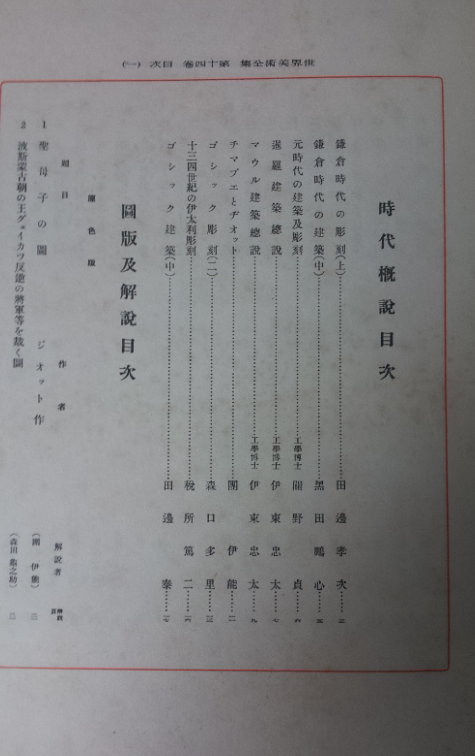 世界美術全集 第十四卷 目次 (一)
時代概說目次
鎌倉時代の彫刻(上)……田邊孝次……三
鎌倉時代の建築(中)……黑田鵬心……五
元時代の建築及彫刻……工學博士 關野貞……六
暹羅建築總說……工學博士 伊東忠太……七
マウル建築總說……工學博士 伊東忠太……九
チマブエとヂオット……團伊能……二
ゴシック彫刻(二)……森口多里……三
十三四世紀の伊太利彫刻……稅所篤二……六
ゴシック建築(中)……田邊泰……七
圖版及解說目次
原色版
題目 作者 解說者
1 聖母子の圖 ジオット作 (團伊能)
2 波斯蒙古朝の王ヴェイカツ反逆の將軍等を裁く圖 (森田龜之助)